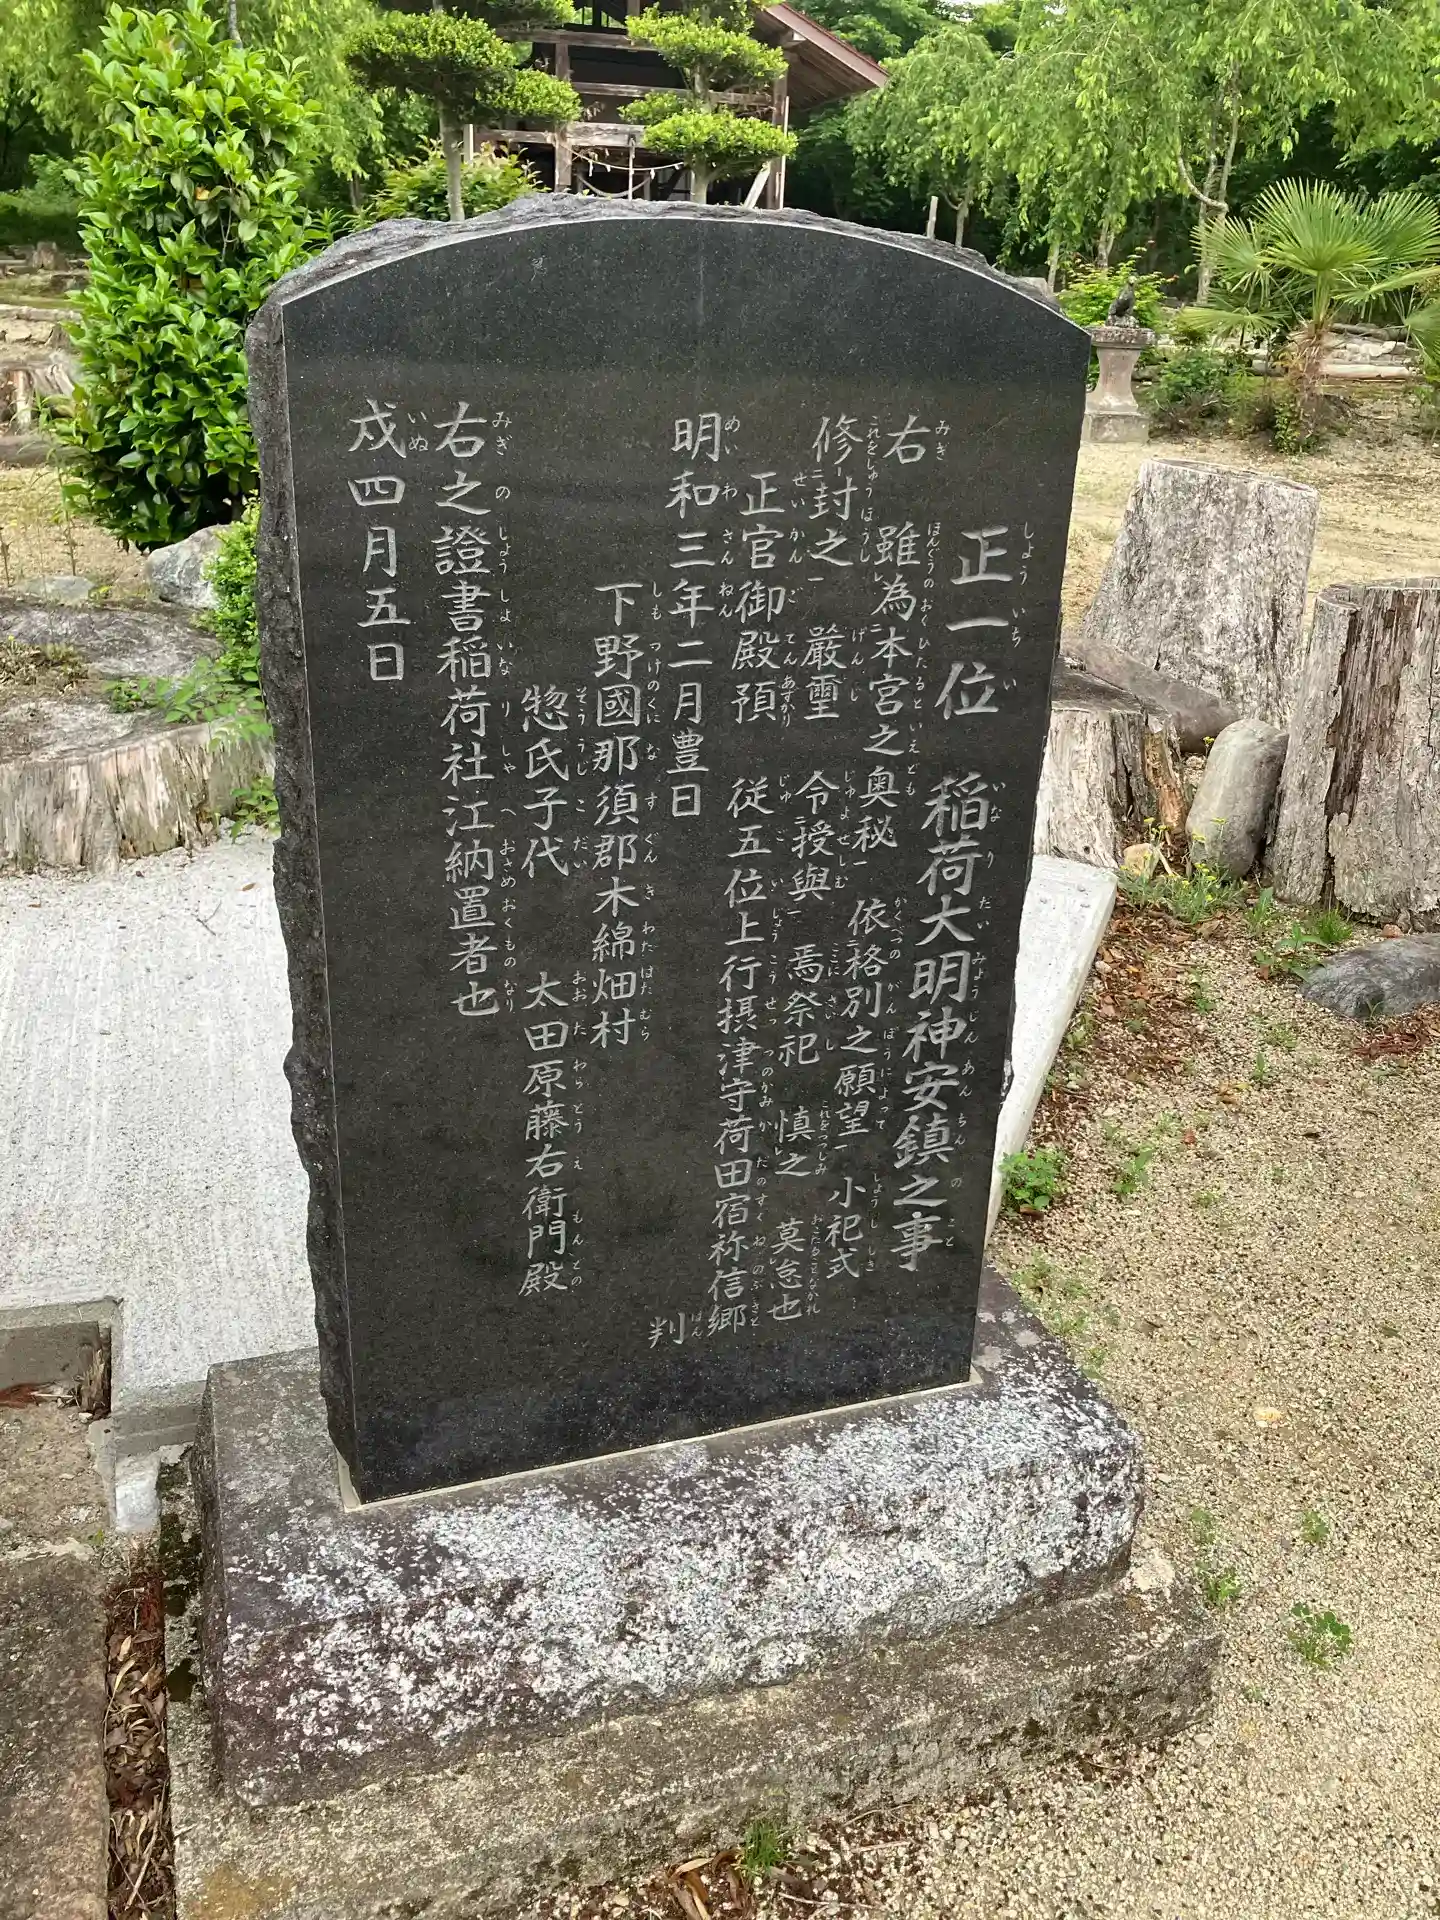 正一位 稲荷大明神安鎮之事
右 雖為本宮之奥秘 依格別之願望 小祀式
修封之 厳璽 令授與 焉祭祀 慎之 莫怠也
正官御殿預 従五位上行摂津守荷田宿祢信郷
判
明和三年二月豊日
下野國那須郡木綿畑村
惣氏子代 太田原藤右衛門殿
右之證書稲荷社江納置者也
戍四月五日